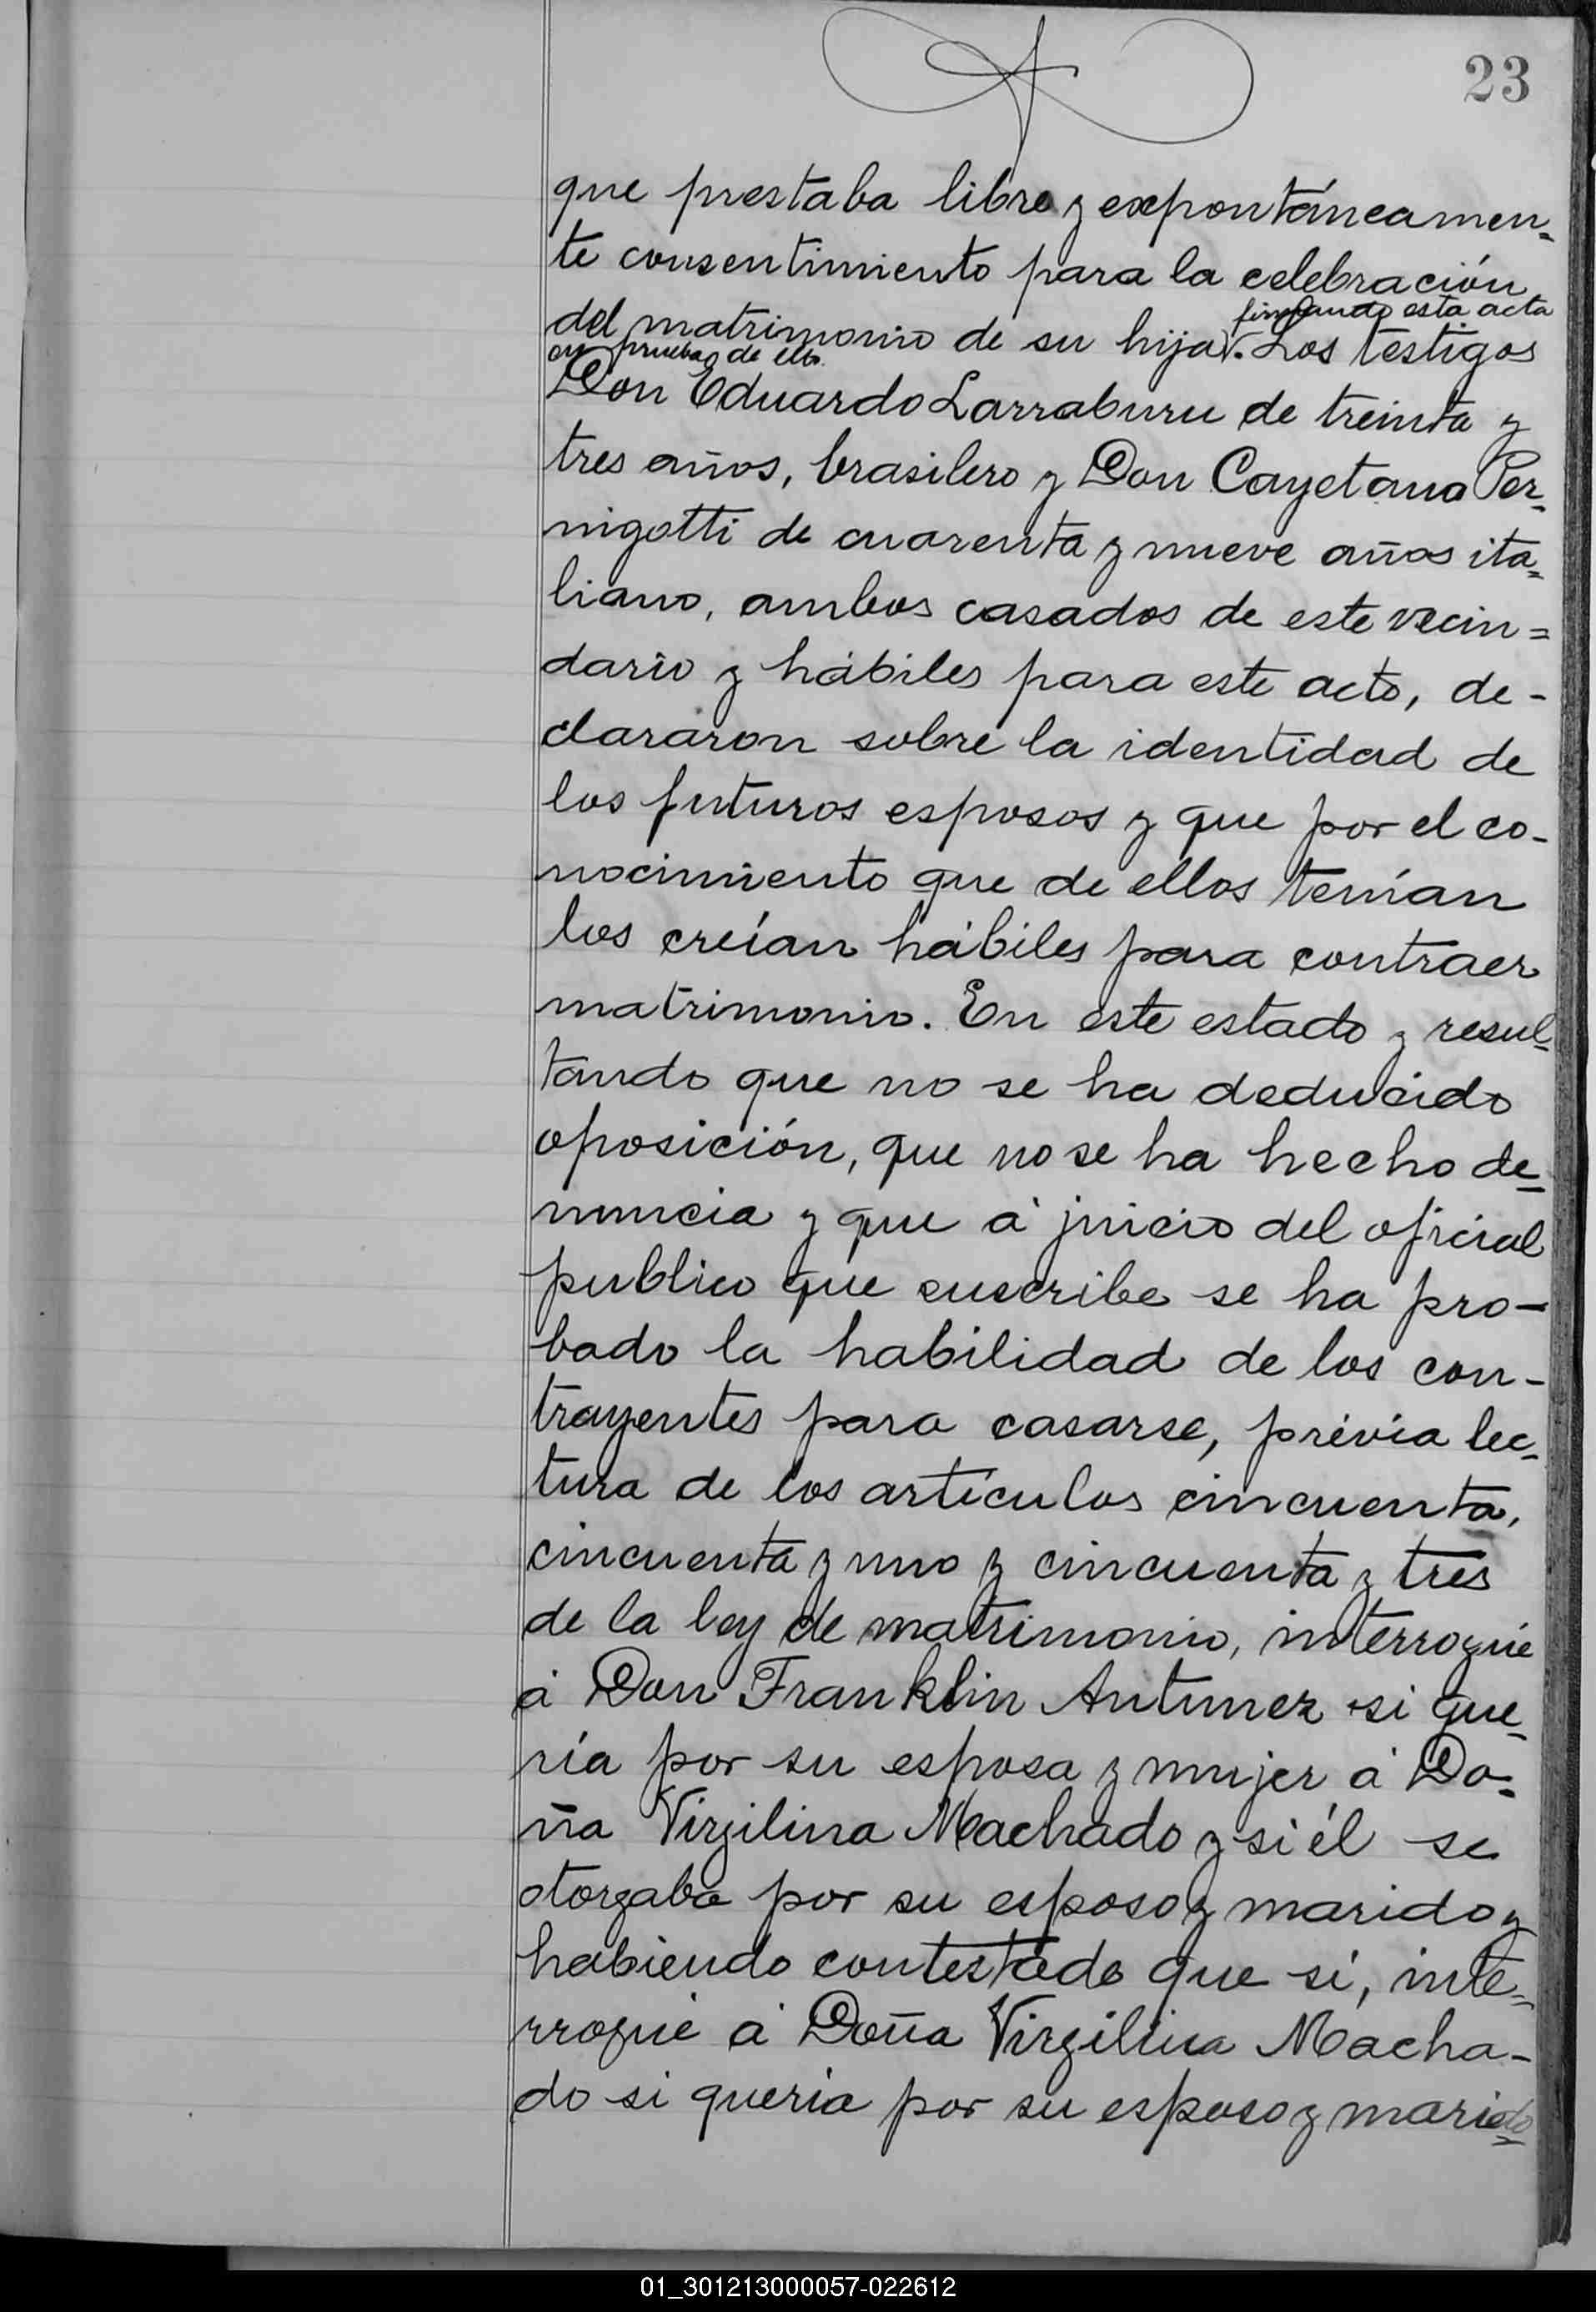 23
que prestaba libre y expontáneamen=
te consentimiento para la celebración
firmando esta acta
del matrimonio de su hija. Los testigos
en prueba de ello.
Don Eduardo Larraburu de treinta y
tres años, brasilero y Don Cayetano Per=
nigotti de cuarenta y nueve años ita=
liano, ambos casados de este vecin=
dario y hábiles para este acto, de-
clararon sobre la identidad de
los futuros esposos y que por el co-
nocimiento que de ellos tenían
los creían hábiles para contraer
matrimonio. En este estado y resul=
tando que no se ha deducido
oposición, que no se ha hecho de=
nuncia y que á juicio del oficial
publico que suscribe se ha pro-
bado la habilidad de los con-
trayentes para casarse, prévia lec=
tura de los artículos cincuenta,
cincuenta y uno y cincuenta y tres
de la ley de matrimonio, interrogué
á Don Franklin Antunez si que=
ría por su esposa y mujer á Do=
ña Virgilina Machado y si él se
otorgaba por su esposo y marido y
habiendo contestado que sí, inte=
rrogué á Doña Virgilina Macha-
do si quería por su esposo y marido
01_301213000057-022612